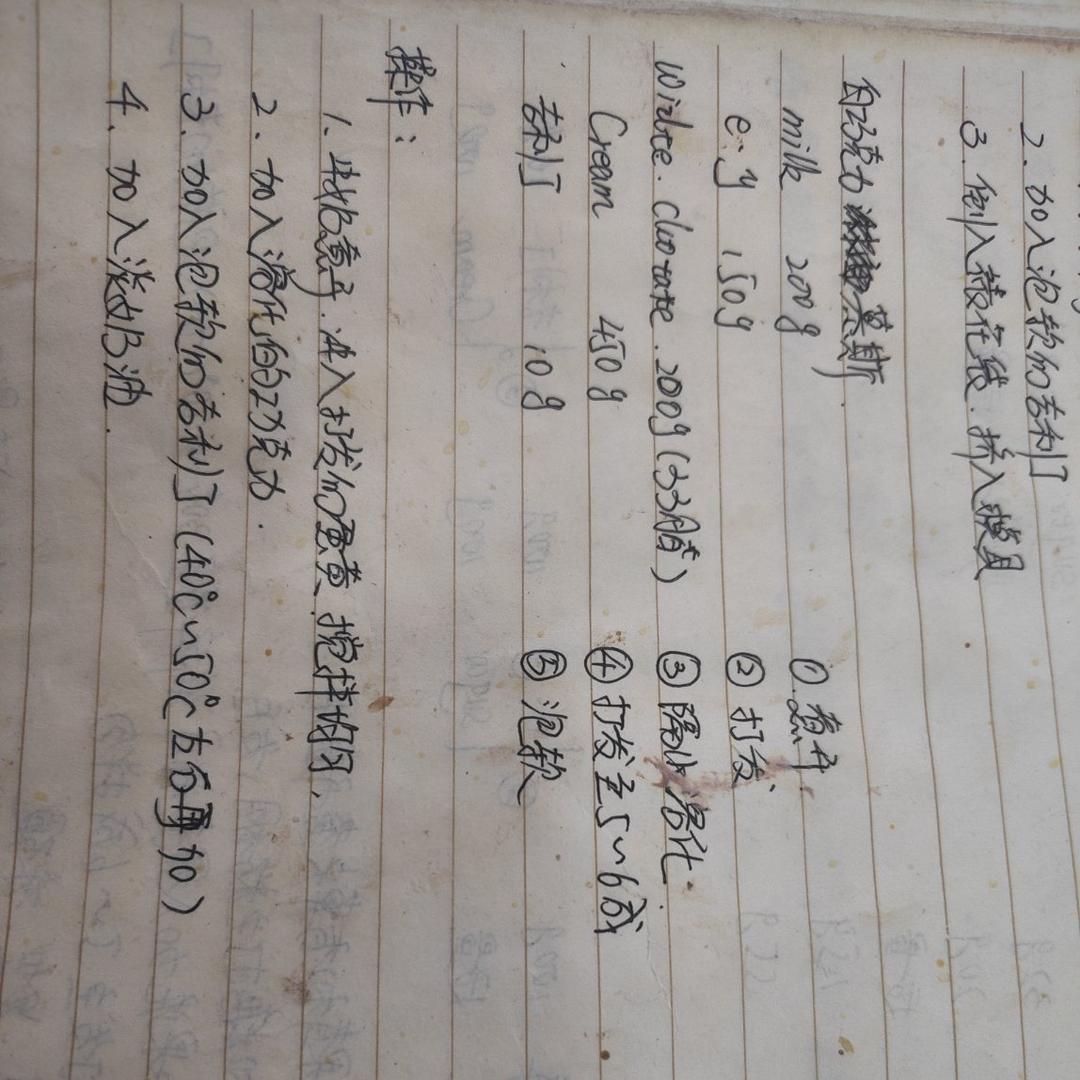 2. 加入泡软的吉利丁
3. 倒入裱花袋. 挤入模具
白巧克力慕斯.
milk 200g ①. 煮开
e.y 150g ② 打发
Wirlte. Cliorate. 200g (33脂) ③ 隔水溶化.
Cream 450g ④ 打发至5~6成
吉利丁 10g ⑤ 泡软
操作:
1. 牛奶煮开. 冲入打发的蛋黄 搅拌均匀,
2. 加入溶化的巧克力.
3. 加入泡软的吉利丁 (40℃~50℃左右再加)
4. 加入淡奶油.